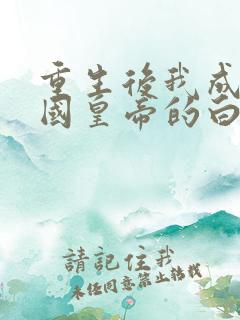 重生後我成
國皇帝的白
請記住我
未經同意禁止轉載